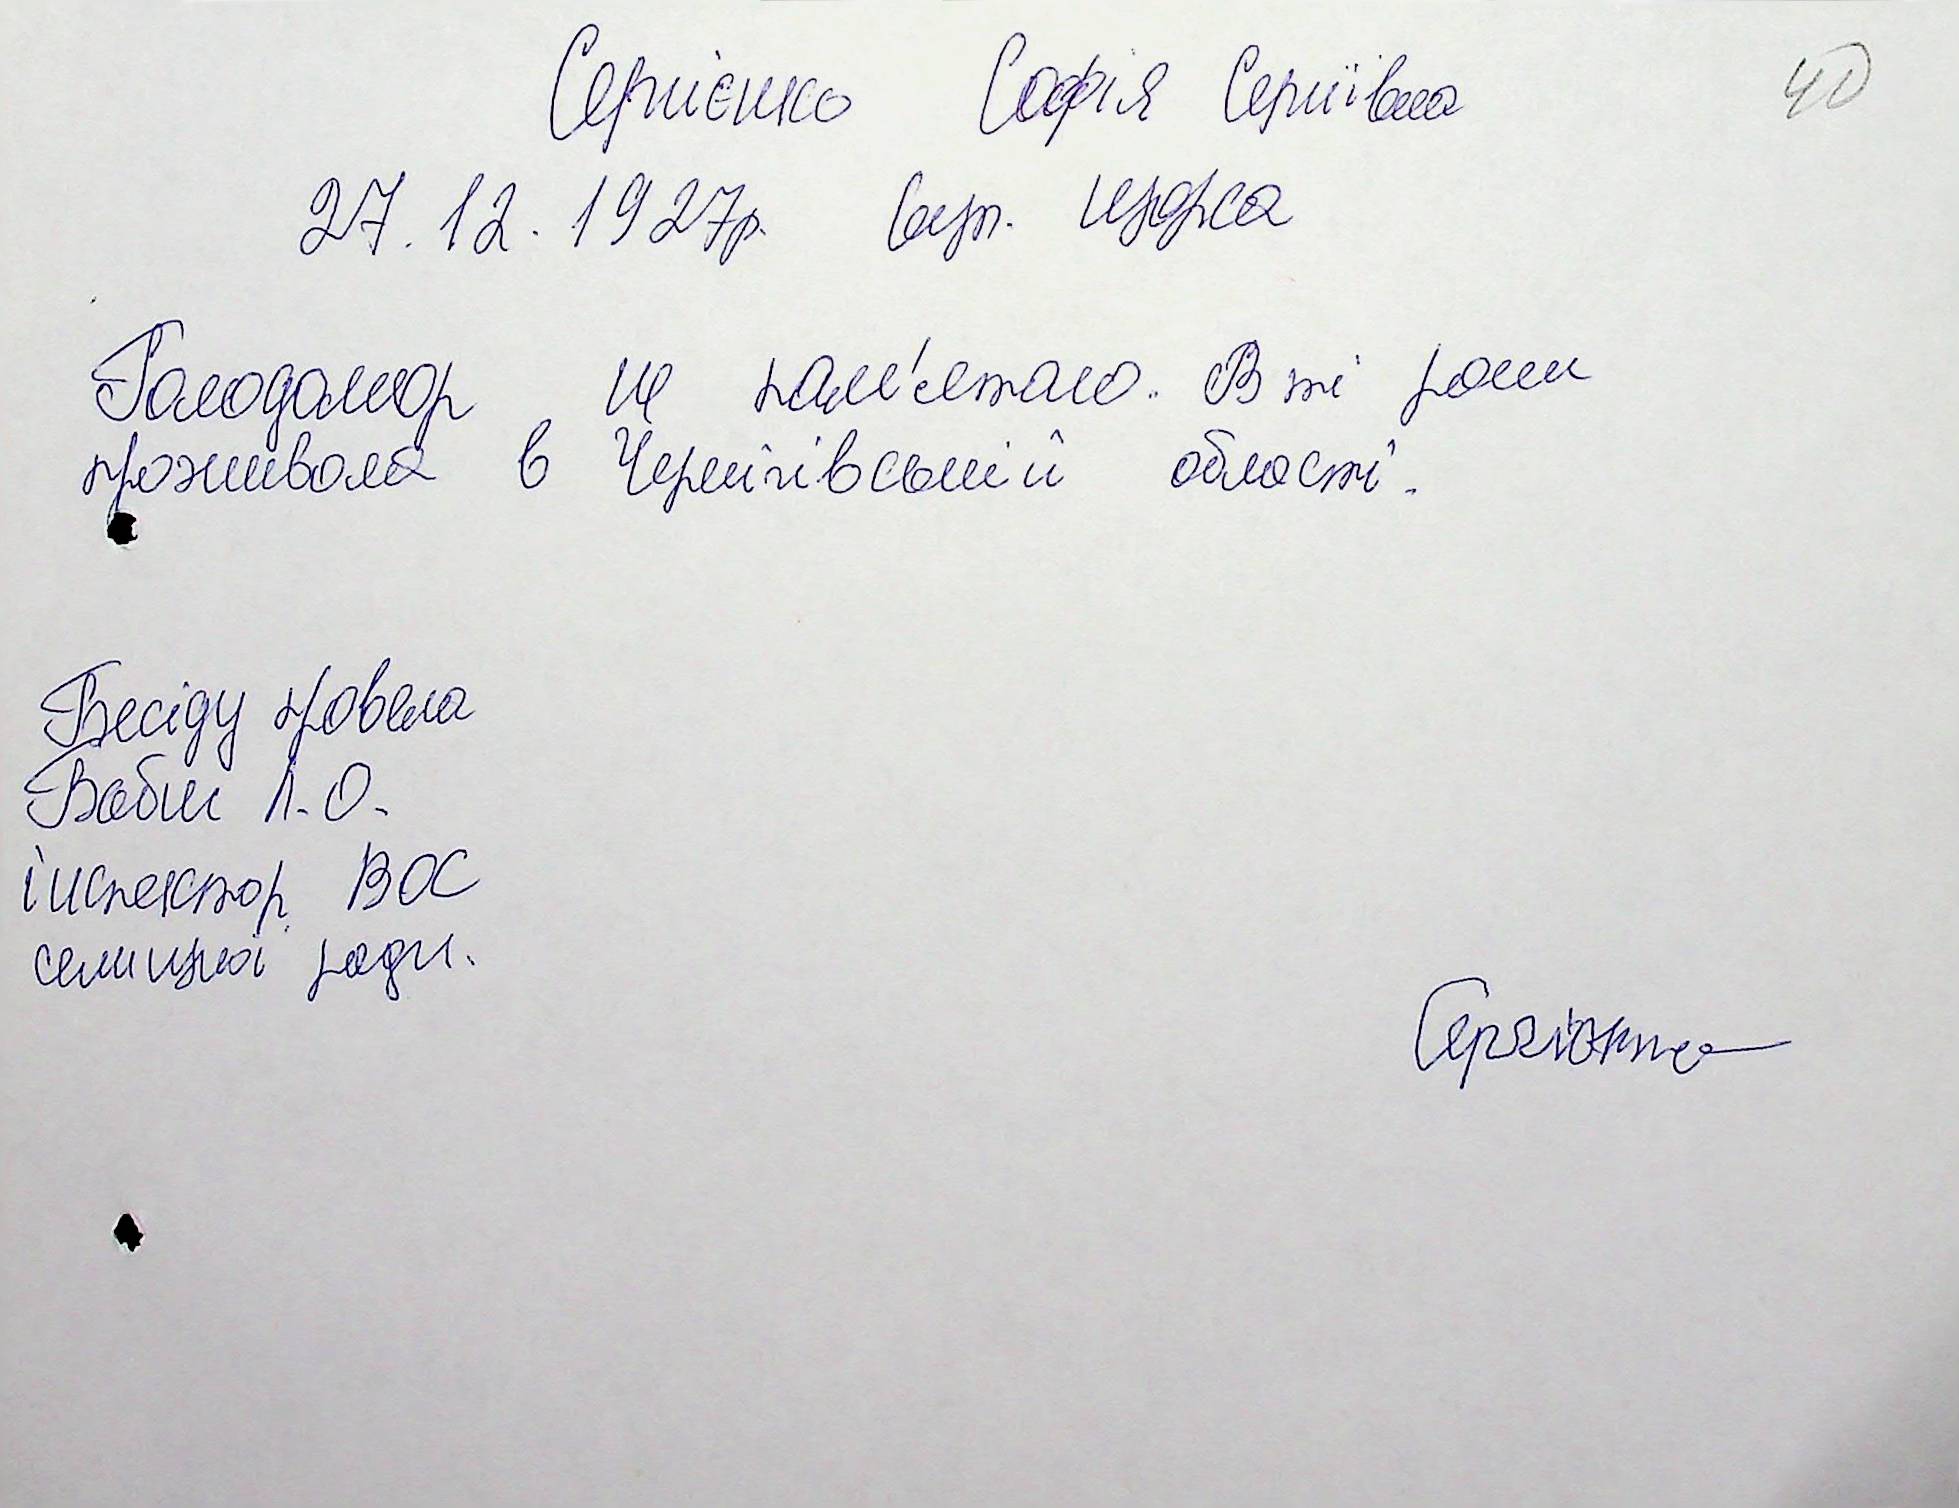 40
Сергієнко Софія Сергіївна
27.12.1927р. вул. Щорса
Голодомор не пам'ятаю. В ті роки
проживала в Чернігівській області.
Бесіду провела
Бабич Л.О.
інспектор ВОС
селищної ради.
Сергієнко